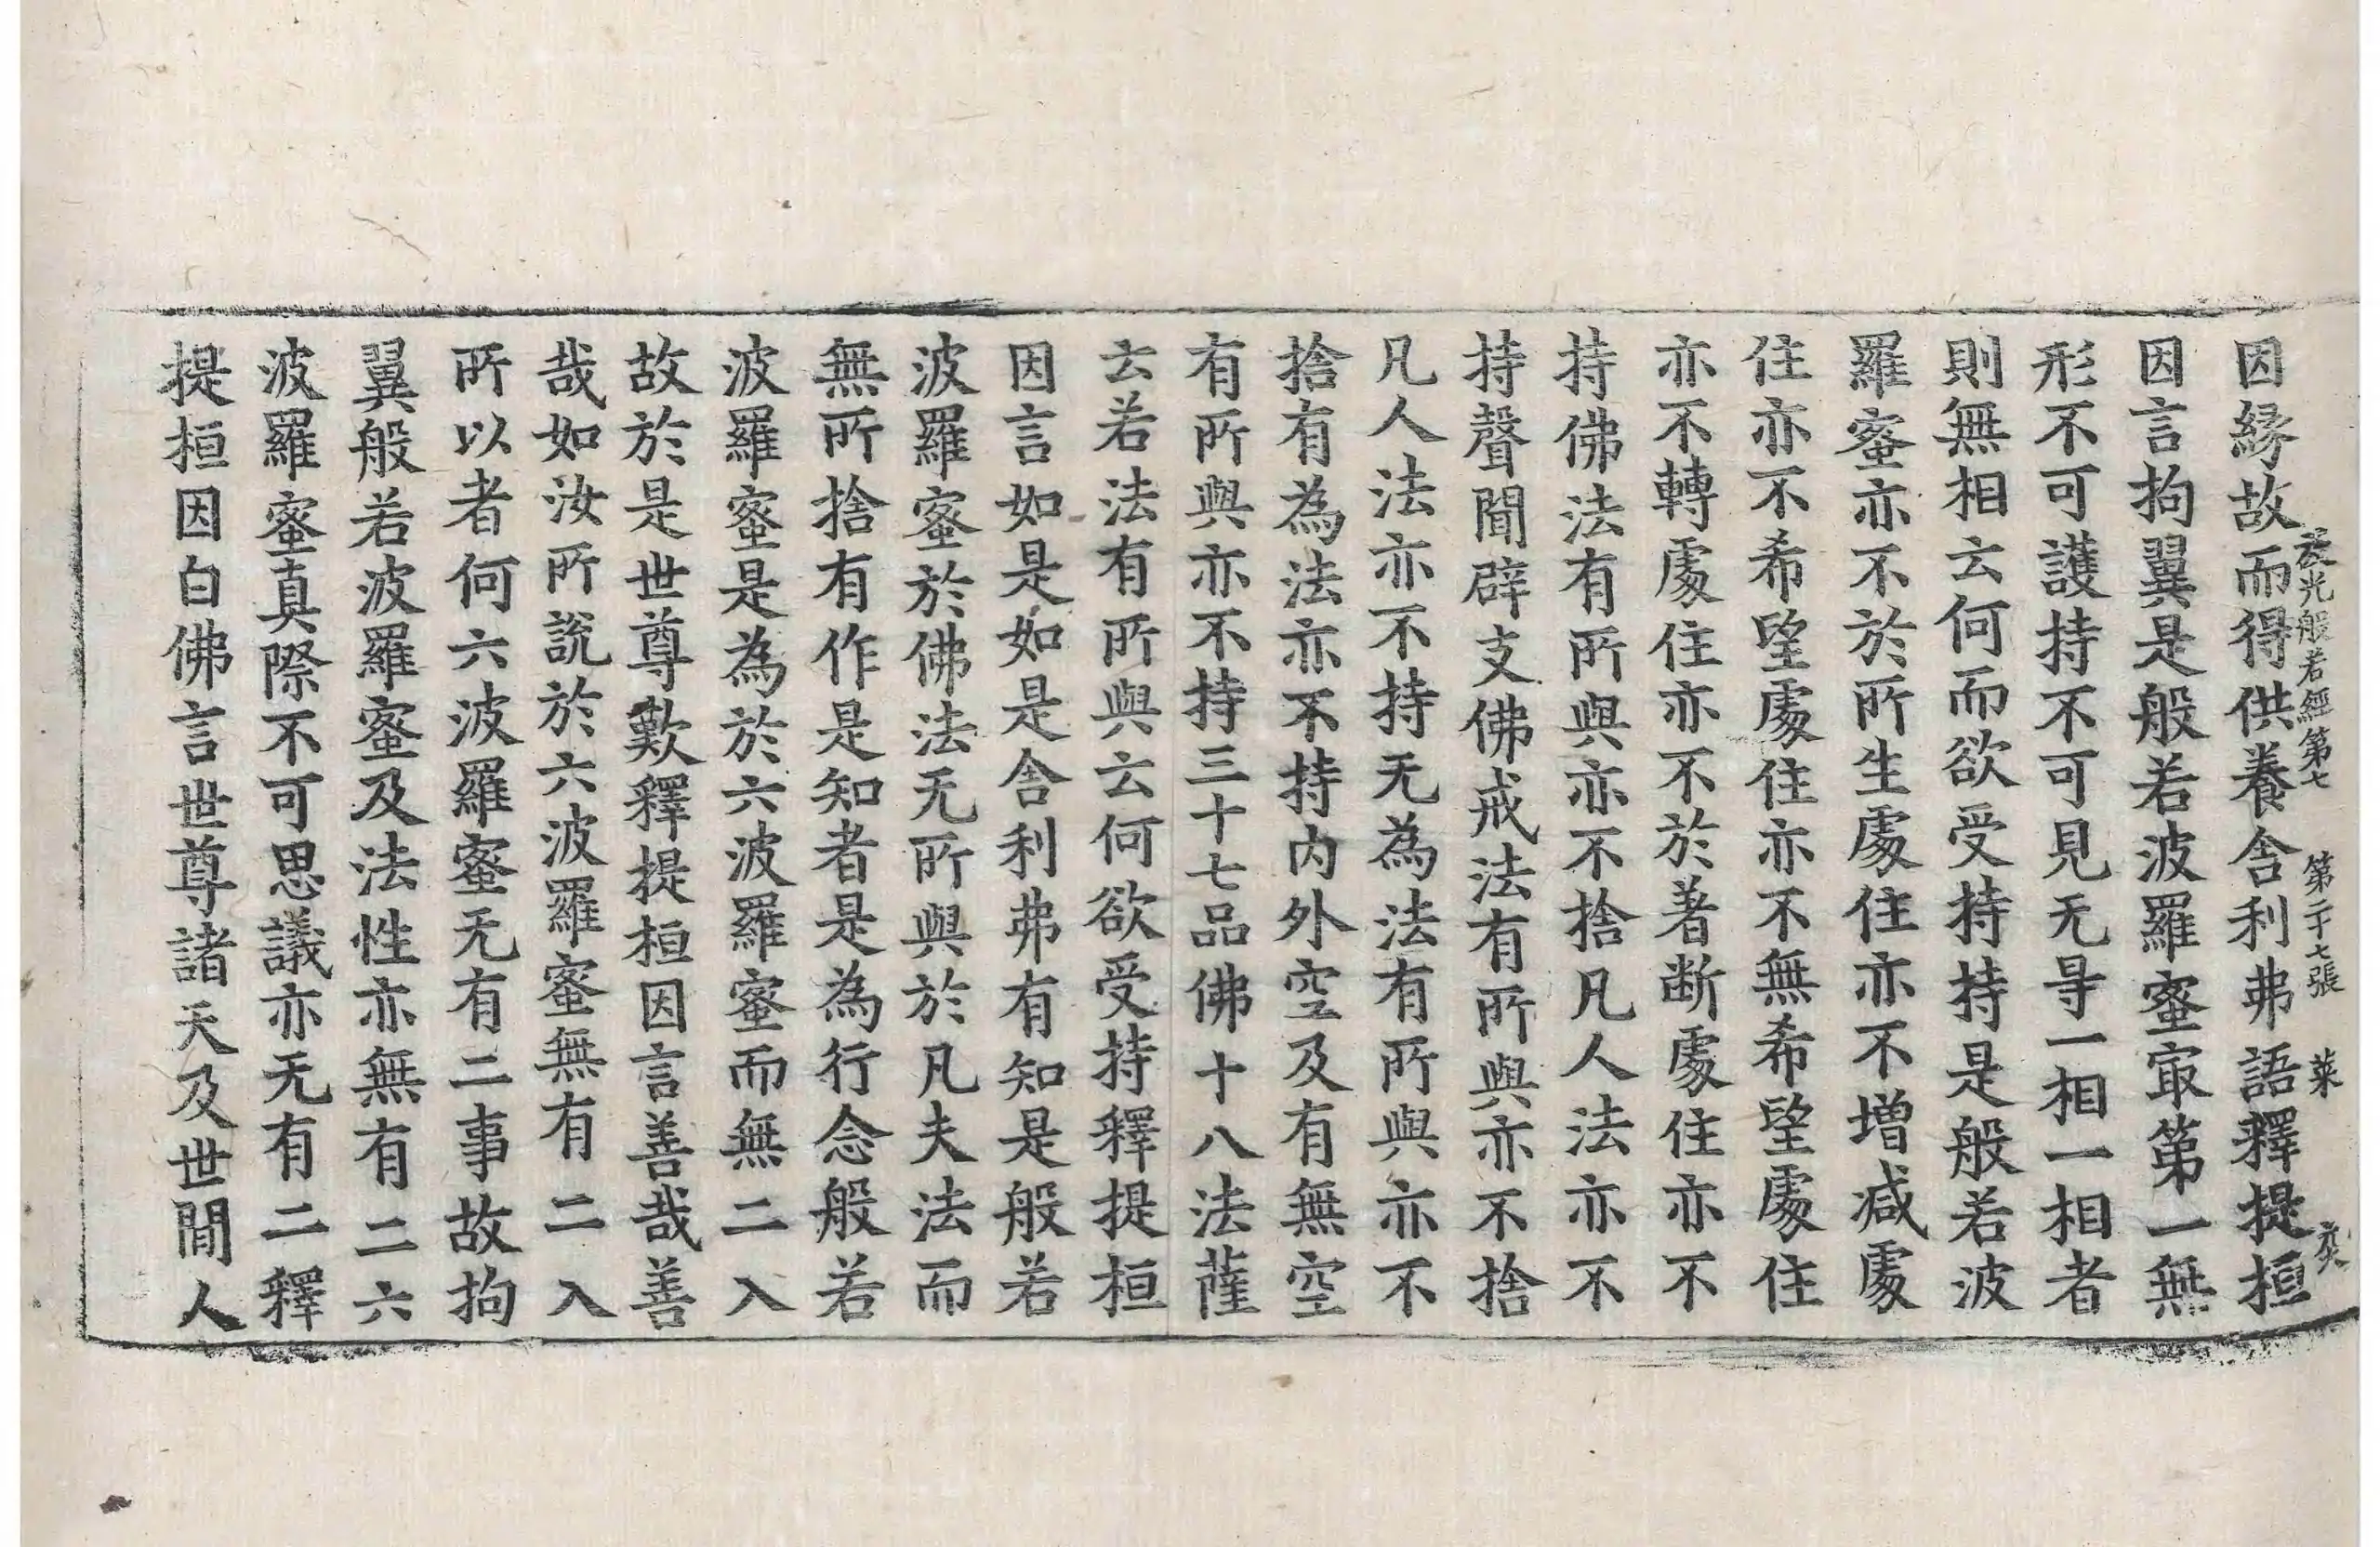 因縁故而得供養舍利弗語釋提桓
放光般若經第七 第二十七張 菜
因言拘翼是般若波羅蜜㝡第一無
形不可護持不可見无㝵一相一相者
則無相云何而欲受持持是般若波
羅蜜亦不於所生處住亦不增減處
住亦不希望處住亦不無希望處住
亦不轉處住亦不於著断處住亦不
持佛法有所與亦不捨凡人法亦不
持聲聞辟支佛戒法有所與亦不捨
凡人法亦不持无為法有所與亦不
捨有為法亦不持內外空及有無空
有所與亦不持三十七品佛十八法薩
云若法有所與云何欲受持釋提桓
因言如是如是舍利弗有知是般若
波羅蜜於佛法无所與於凡夫法而
無所捨有作是知者是為行念般若
波羅蜜是為於六波羅蜜而無二入
故於是世尊歎釋提桓因言善哉善
哉如汝所說於六波羅蜜無有二入
所以者何六波羅蜜无有二事故拘
翼般若波羅蜜及法性亦無有二六
波羅蜜真際不可思議亦无有二釋
提桓因白佛言世尊諸天及世間人